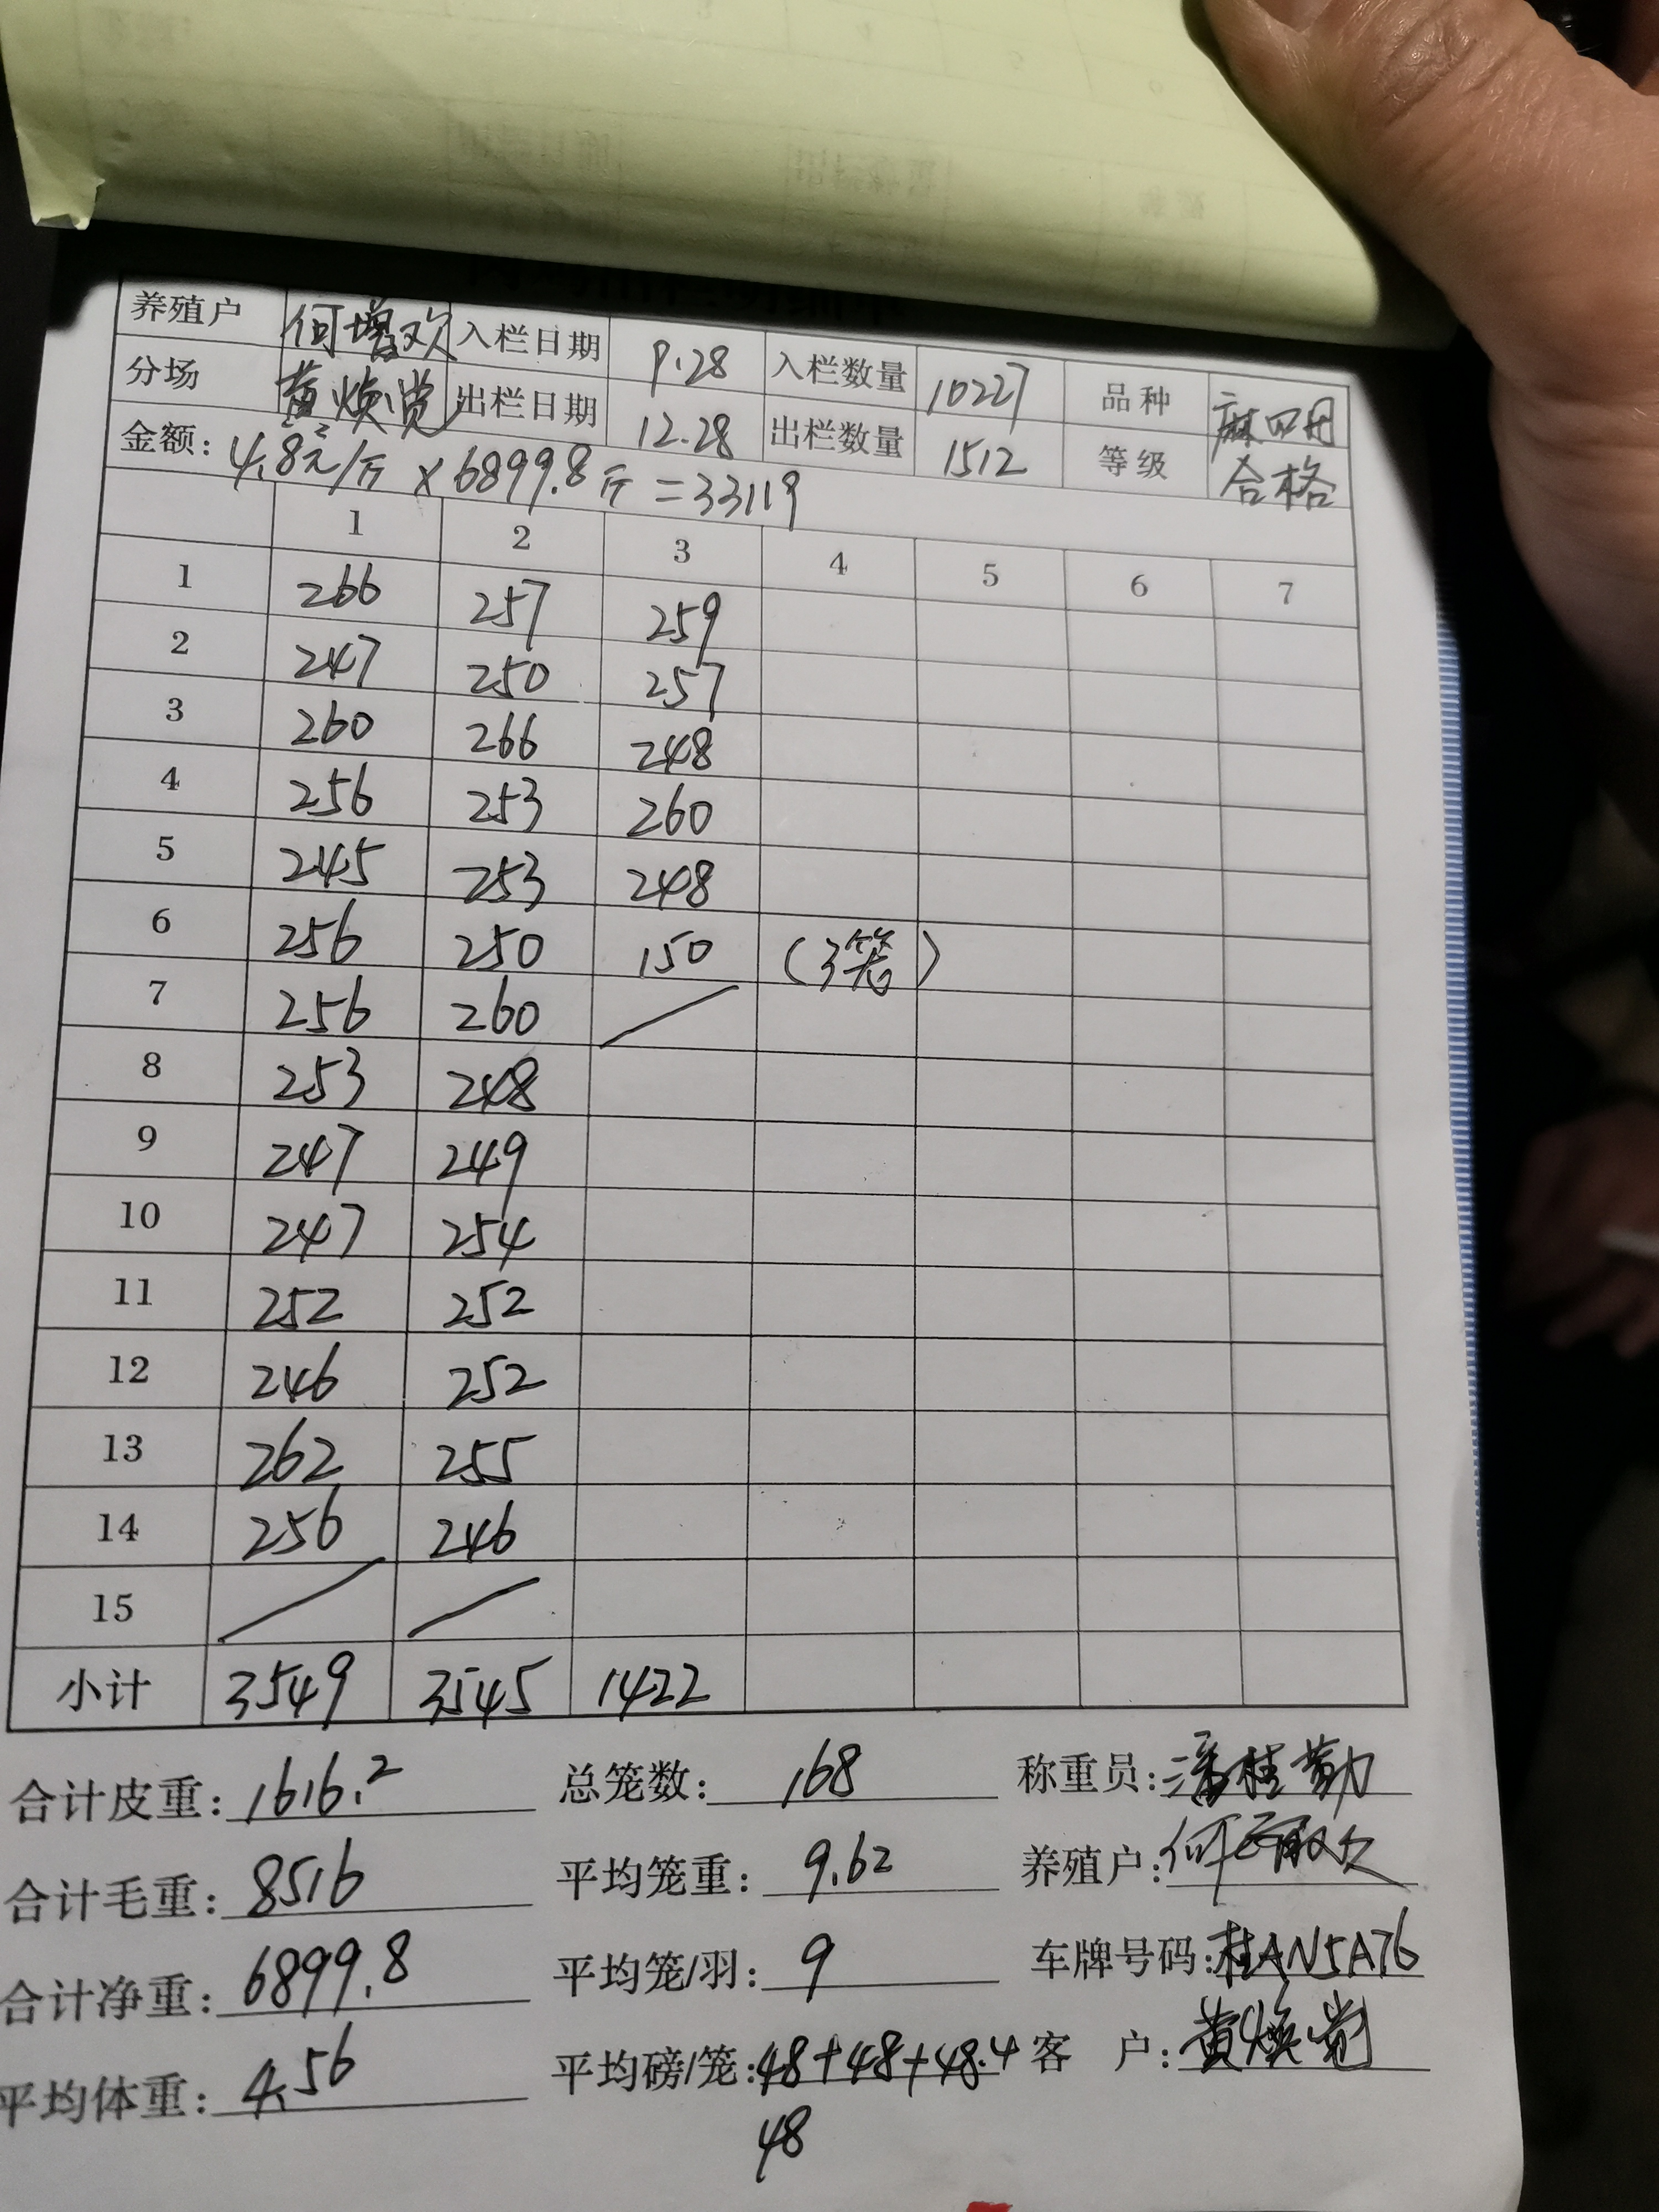 养殖户 何增欢 入栏日期 9.28 入栏数量 10227 品种 麻四用
分场 黄焕党 出栏日期 12.28 出栏数量 1512 等级 合格
金额: 4.8元/斤 × 6899.8斤 = 33119
1 2 3 4 5 6 7
1 266 257 259
2 247 250 257
3 260 266 248
4 256 253 260
5 245 253 248
6 256 250 150 (3笼)
7 256 260
8 253 248
9 247 249
10 247 254
11 252 252
12 246 252
13 262 255
14 256 246
15
小计 3549 3545 1422
合计皮重: 1616.2 总笼数: 168 称重员: 潘桂勤
合计毛重: 8516 平均笼重: 9.62 养殖户:
合计净重: 6899.8 平均笼/羽: 9 车牌号码: 桂AN5A76
平均体重: 4.56 平均磅/笼: 48+48+48.4 客 户: 黄焕党
48